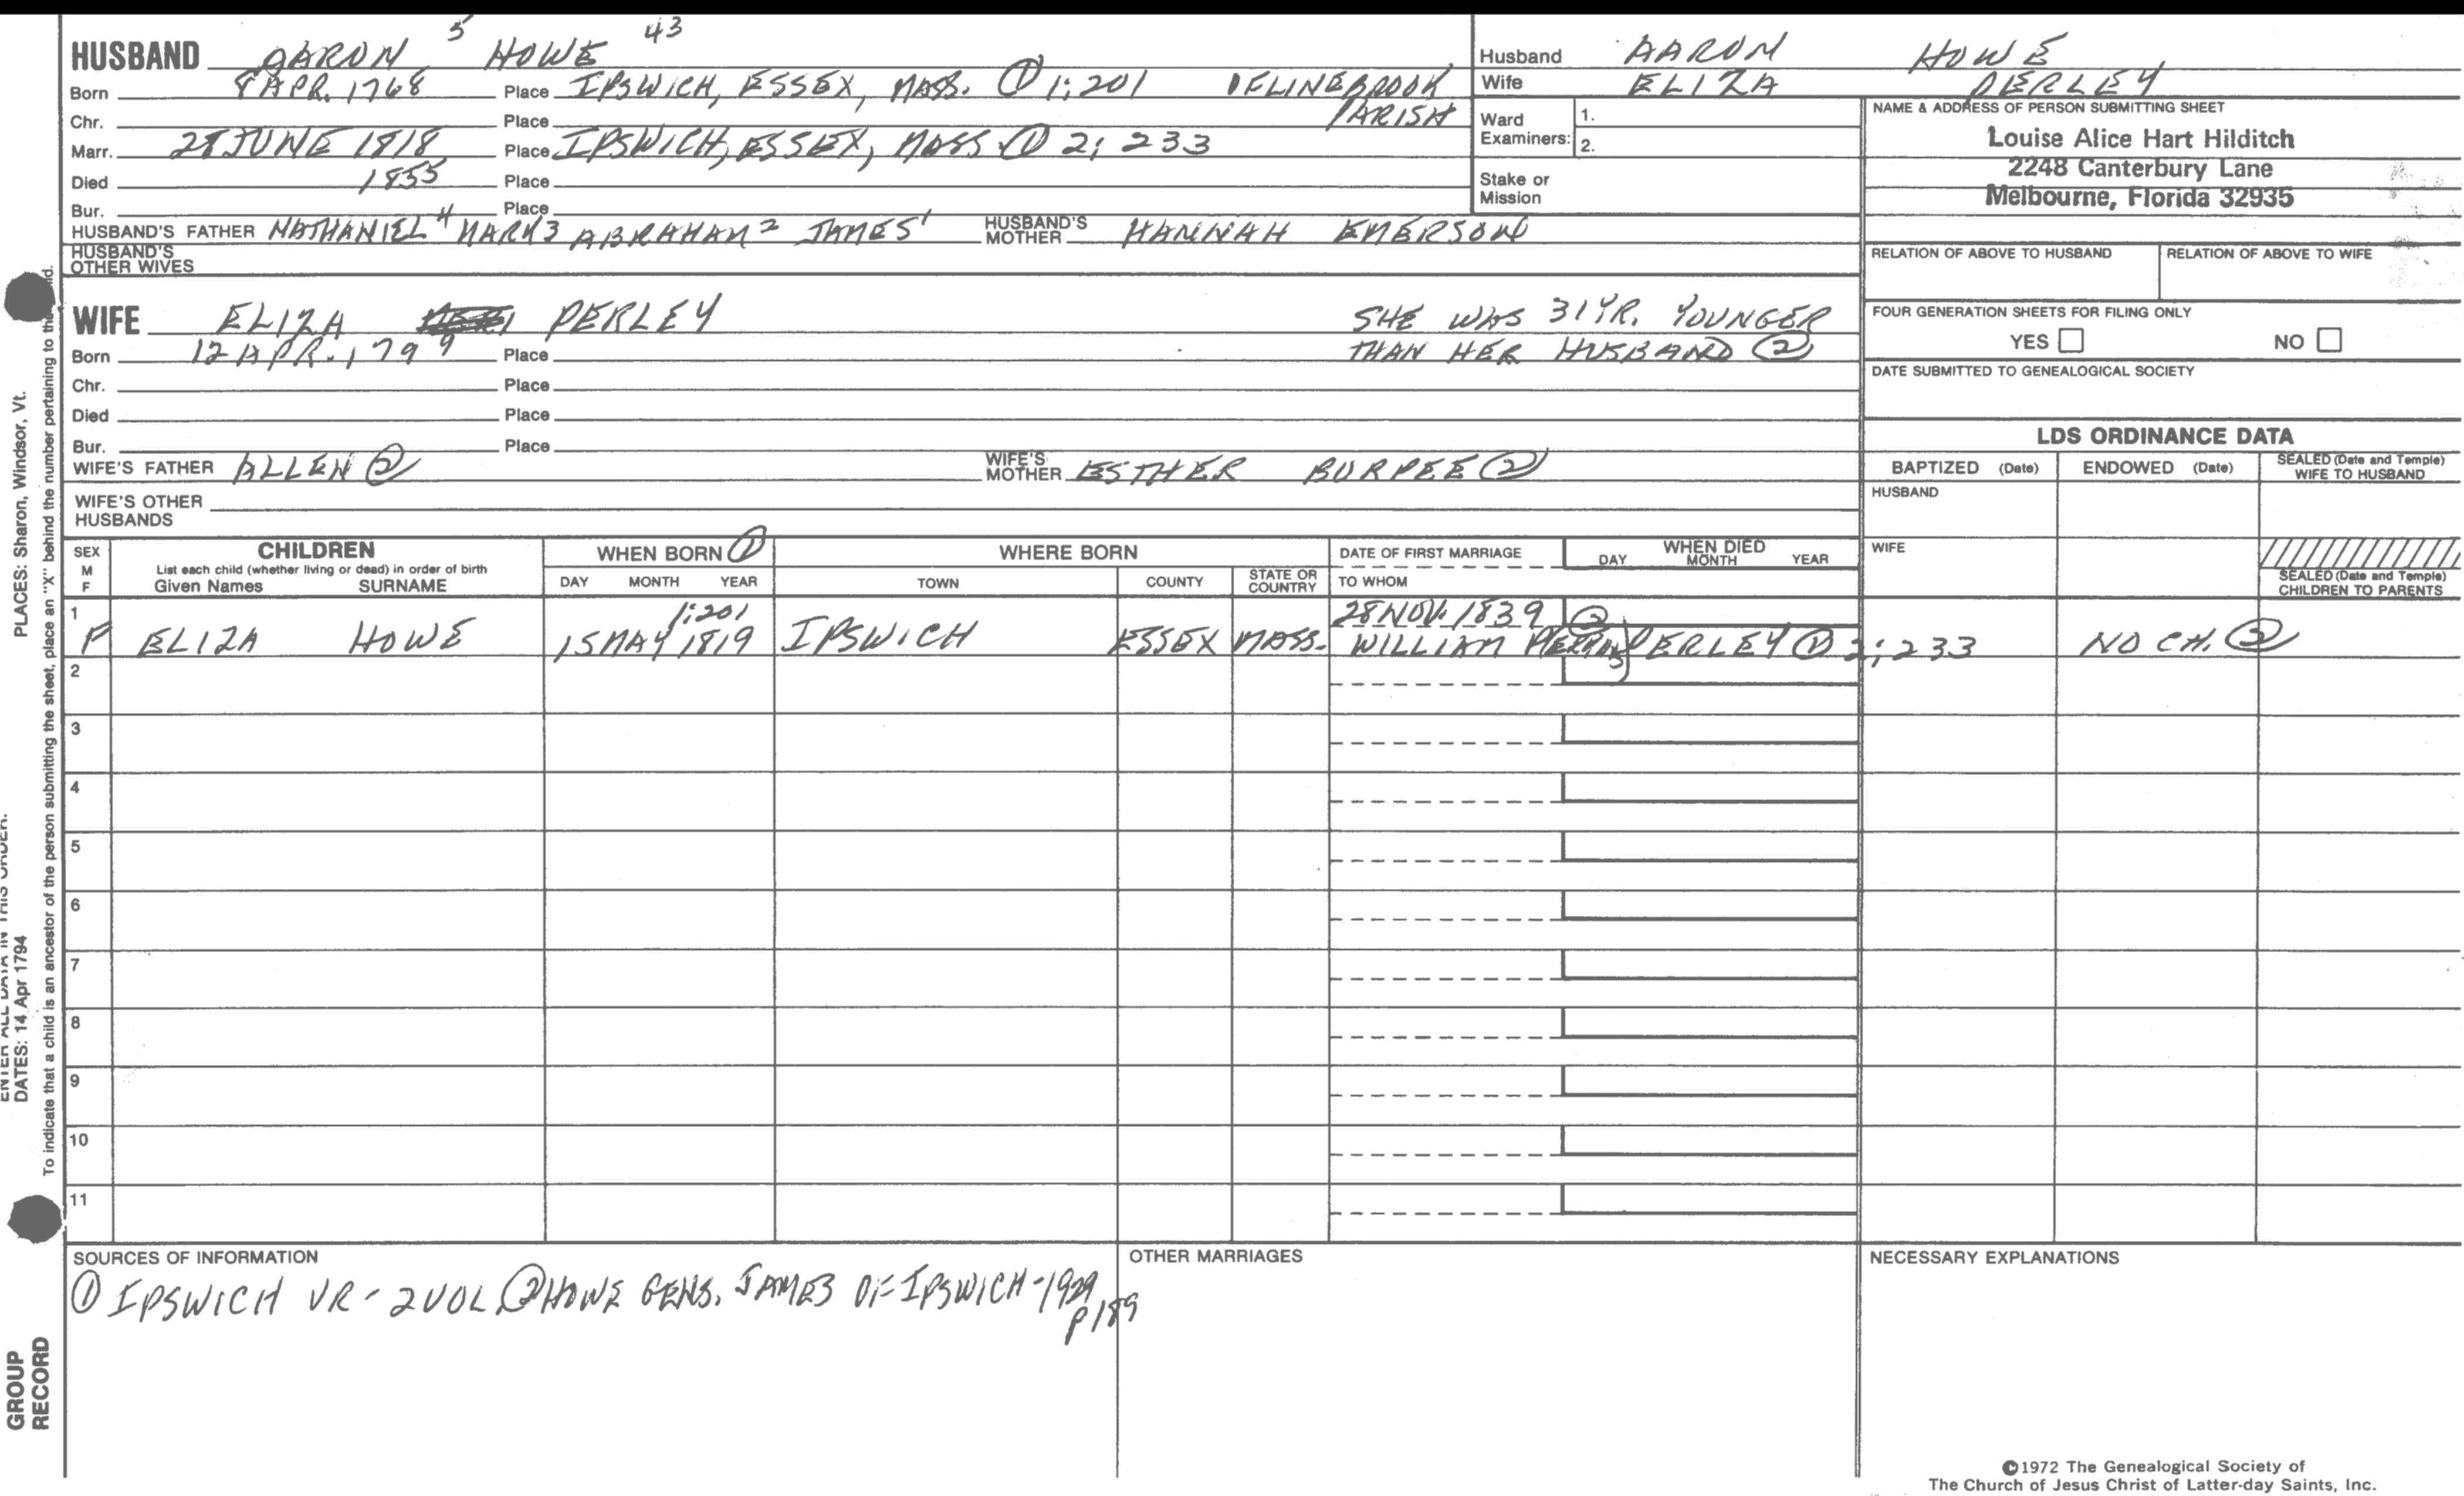 5 43
HUSBAND AARON HOWE
Born 8 APR. 1768 Place IPSWICH, ESSEX, MASS. ① 1:201 OF LINEBROOK
Chr. Place PARISH
Marr. 28 JUNE 1818 Place IPSWICH, ESSEX, MASS ① 2; 233
Died 1855 Place
Bur. Place
HUSBAND'S FATHER NATHANIEL 4 MARK 3 ABRAHAM 2 JAMES 1 HUSBAND'S MOTHER HANNAH EMERSON
HUSBAND'S OTHER WIVES
Husband AARON HOWE
Wife ELIZA PERLEY
Ward Examiners: 1.
2.
Stake or Mission
NAME & ADDRESS OF PERSON SUBMITTING SHEET
Louise Alice Hart Hilditch
2248 Canterbury Lane
Melbourne, Florida 32935
RELATION OF ABOVE TO HUSBAND RELATION OF ABOVE TO WIFE
FOUR GENERATION SHEETS FOR FILING ONLY
YES NO
DATE SUBMITTED TO GENEALOGICAL SOCIETY
WIFE ELIZA PERLEY SHE WAS 31 YR. YOUNGER
Born 12 APR. 1799 Place THAN HER HUSBAND ②
Chr. Place
Died Place
Bur. Place
WIFE'S FATHER ALLEN ② WIFE'S MOTHER ESTHER BURPEE ②
WIFE'S OTHER HUSBANDS
LDS ORDINANCE DATA
BAPTIZED (Date) ENDOWED (Date) SEALED (Date and Temple) WIFE TO HUSBAND
HUSBAND
WIFE
SEALED (Date and Temple) CHILDREN TO PARENTS
SEX M F
CHILDREN
List each child (whether living or dead) in order of birth
Given Names SURNAME
WHEN BORN ①
DAY MONTH YEAR
WHERE BORN
TOWN COUNTY STATE OR COUNTRY
DATE OF FIRST MARRIAGE
TO WHOM
WHEN DIED
DAY MONTH YEAR
1 1:201 28 NOV. 1839 ②
F ELIZA HOWE 15 MAY 1819 IPSWICH ESSEX MASS. WILLIAM PERLEY ① 2; 233 NO CH. ②
2
3
4
5
6
7
8
9
10
11
SOURCES OF INFORMATION
① IPSWICH VR - 2 VOL ② HOWE GENS. JAMES OF IPSWICH - 1929
P 189
OTHER MARRIAGES
NECESSARY EXPLANATIONS
©1972 The Genealogical Society of
The Church of Jesus Christ of Latter-day Saints, Inc.
ENTER ALL DATA IN THIS ORDER.
DATES: 14 Apr 1794 PLACES: Sharon, Windsor, Vt.
To indicate that a child is an ancestor of the person submitting the sheet, place an "X" behind the number pertaining to the
GROUP
RECORD